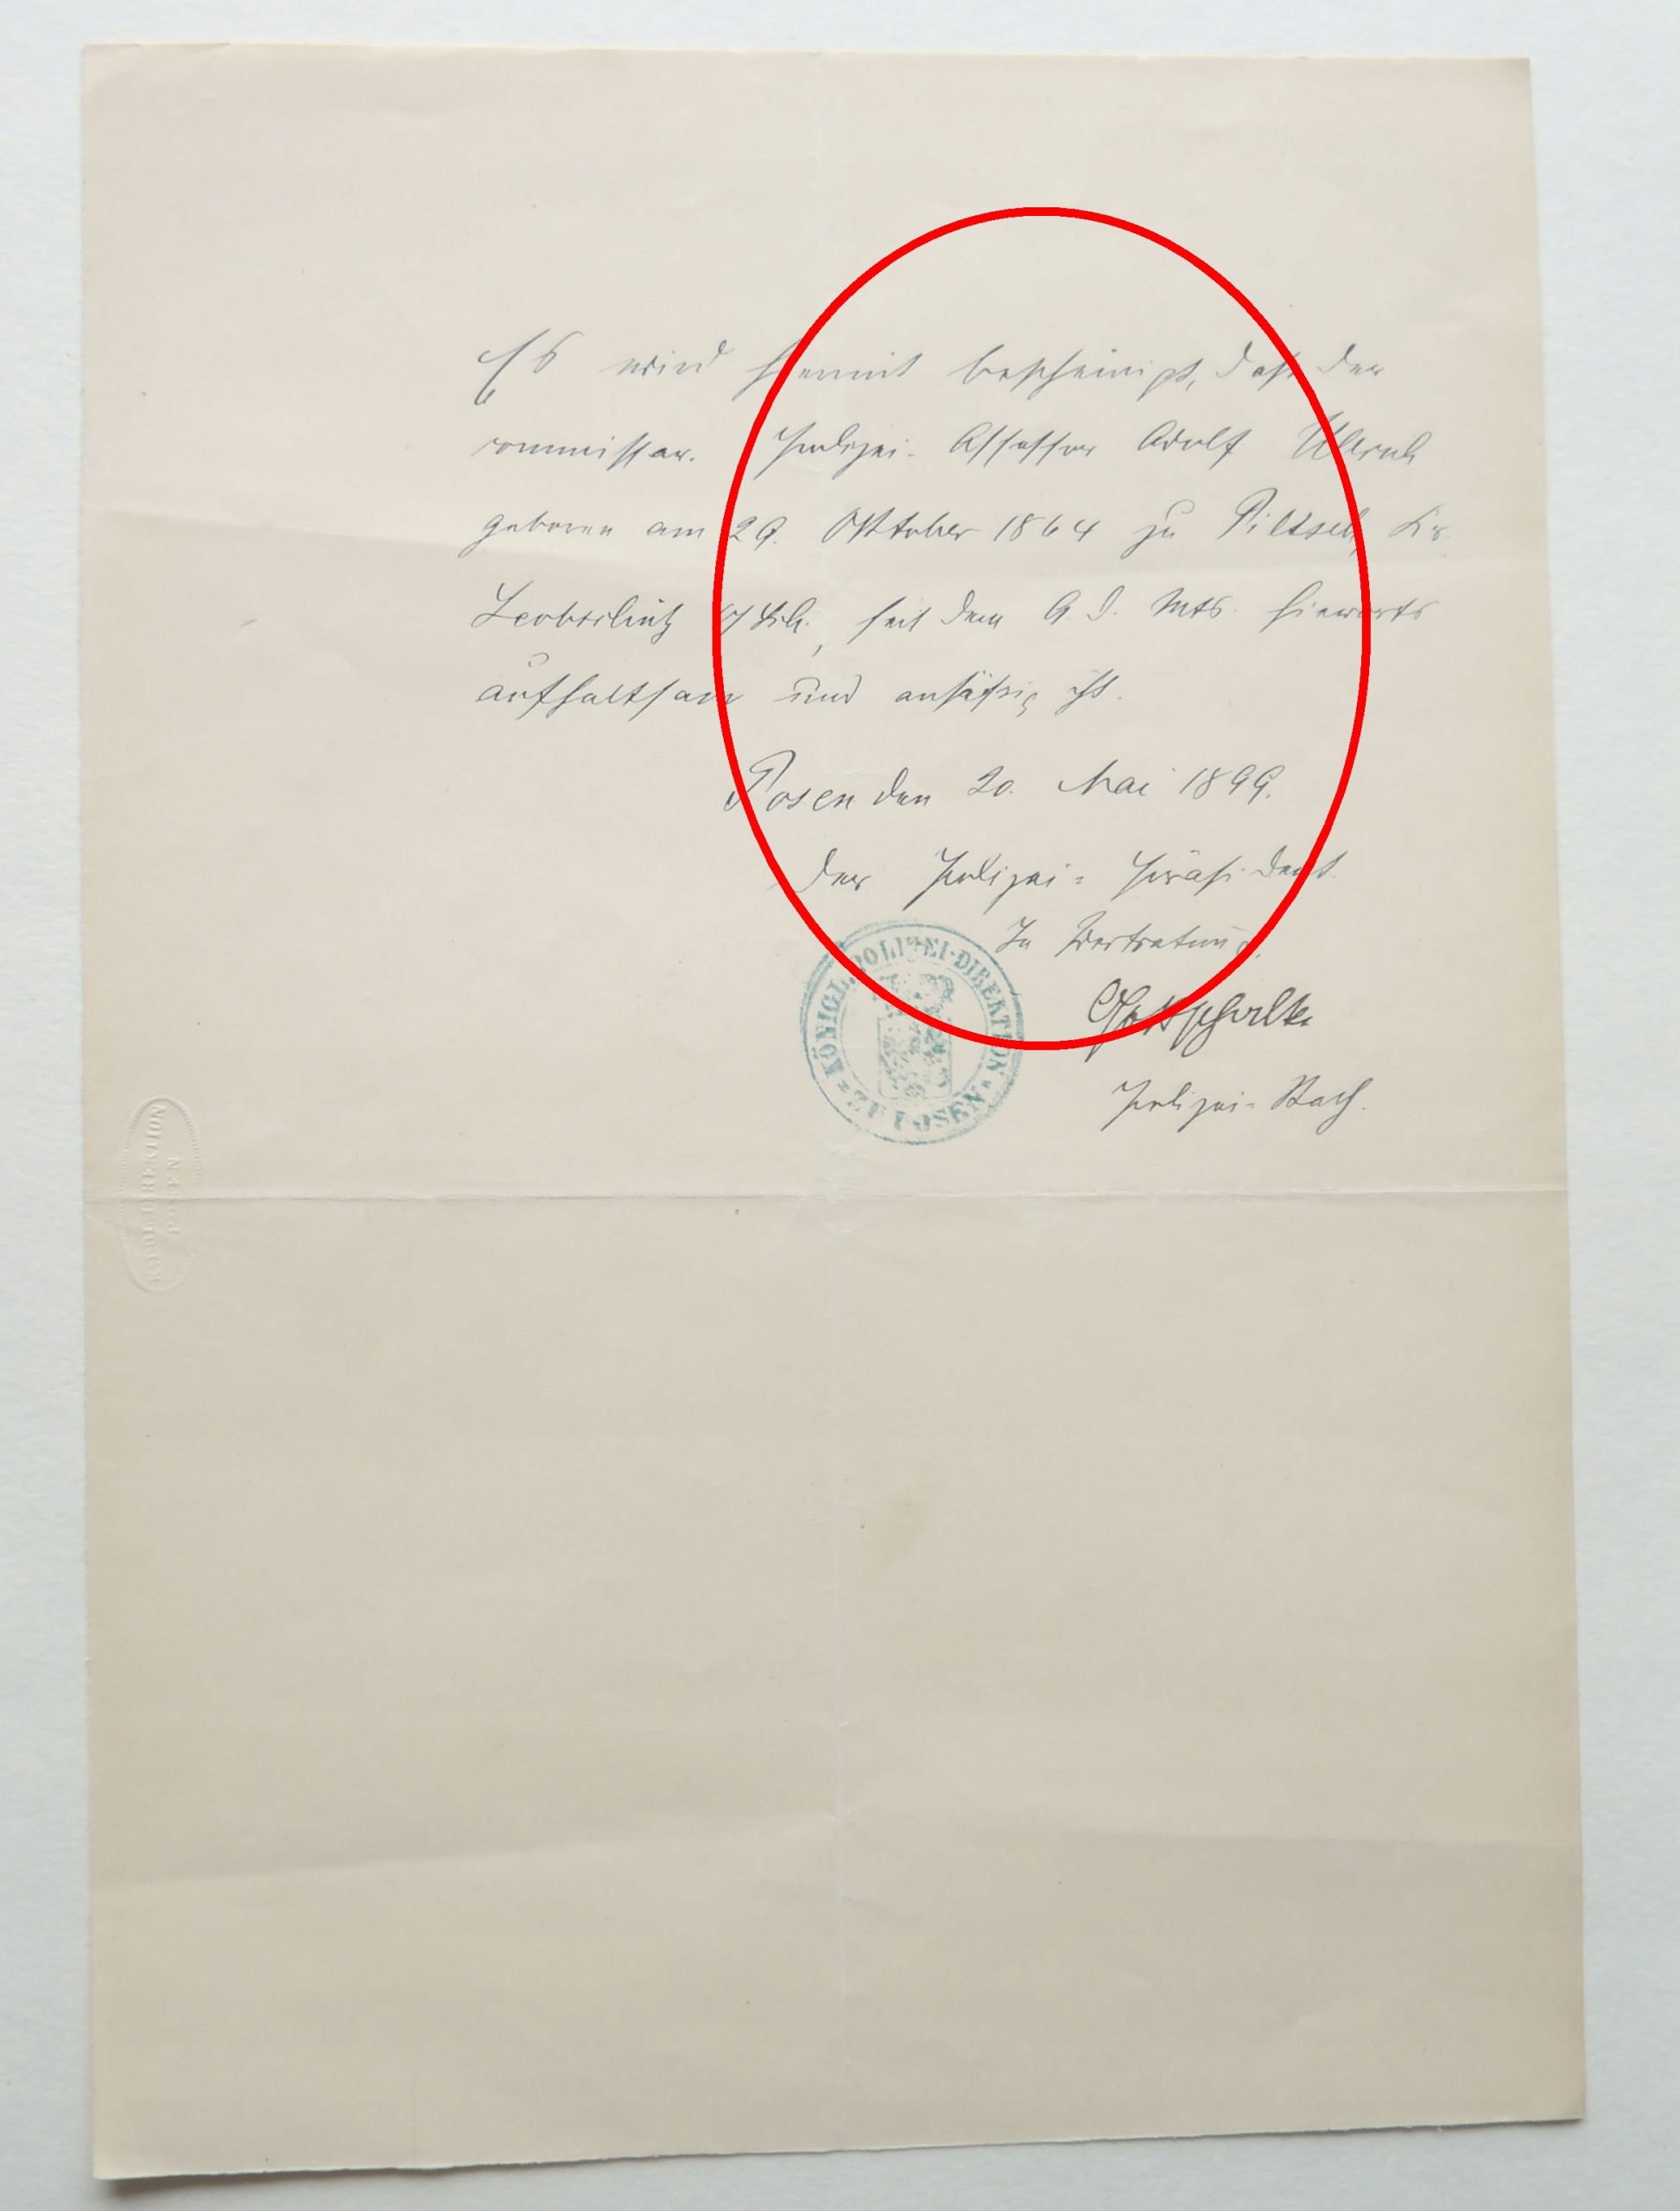 Es wird hiermit bescheinigt, daß der
commissar. Polizei-Assessor Adolf
geboren am 29. Oktober 1864 zu Piltsch, Kr.
Leobschütz O/Schl., seit dem 9. d. Mts. hierorts
aufhaltsam und ansässig ist.
Posen den 20. Mai 1899.
Der Polizei-Präsident.
In Vertretung.
Polizei-Rath.
KÖNIGL. POLIZEI-DIREKTION
* ZU POSEN *
POSEN